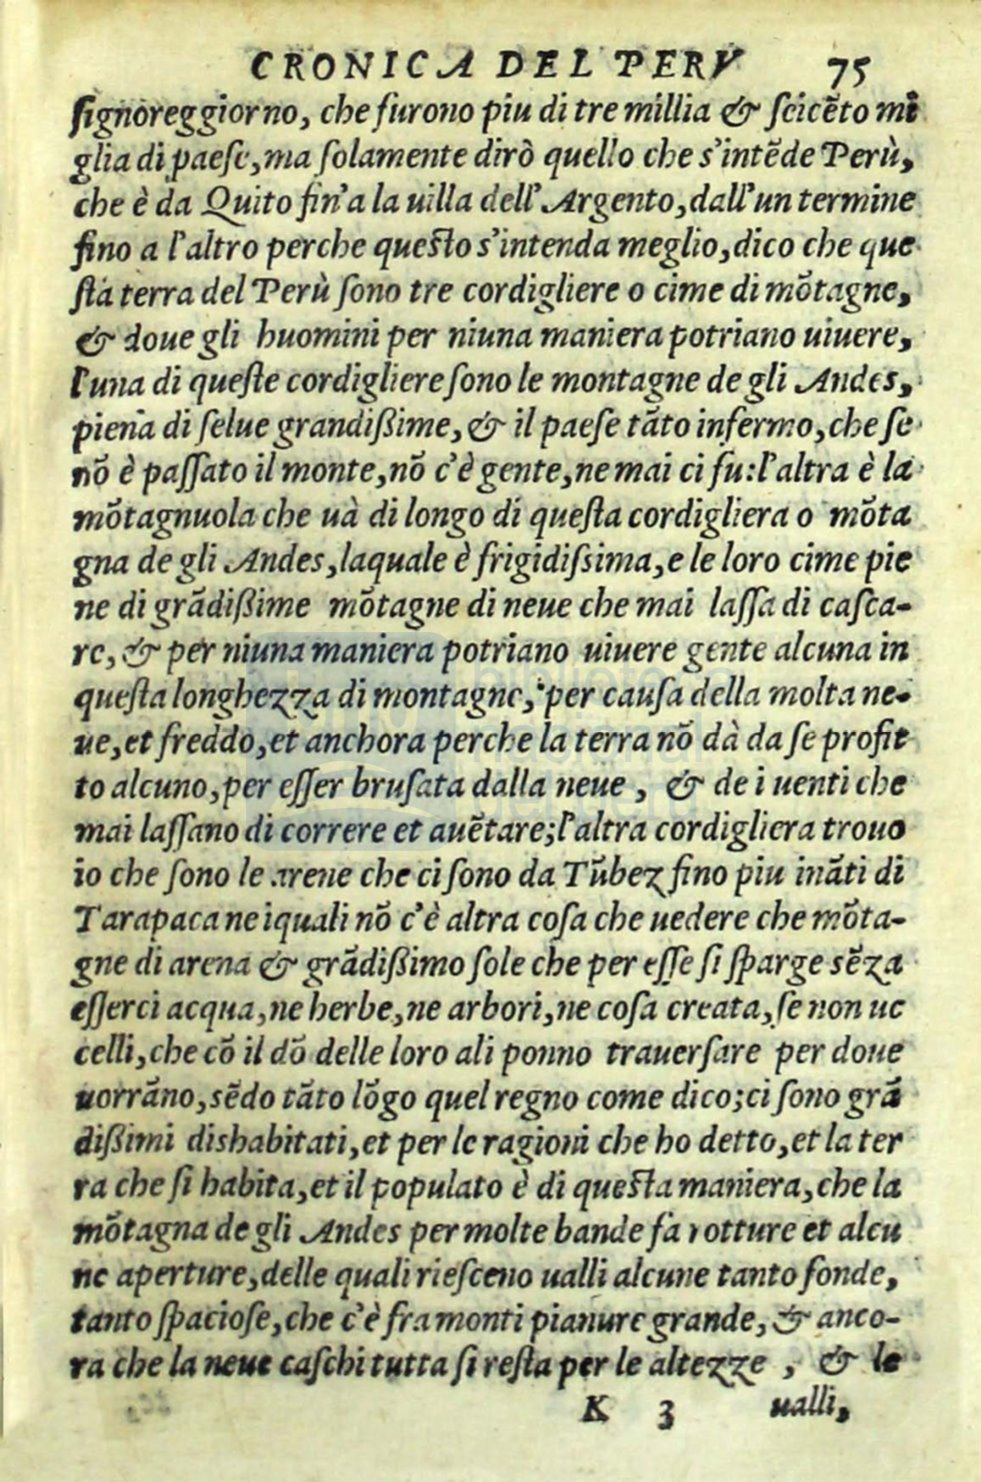 CRONICA DEL PERV 75
ſignoreggiorno, che furono piu di tre millia & ſcicẽto mi
glia di paeſe, ma ſolamente dirò quello che s'intẽde Perù,
che è da Quito fin'a la uilla dell'Argento, dall'un termine
fino a l'altro perche queſto s'intenda meglio, dico che que
ſta terra del Perù ſono tre cordigliere o cime di mõtagne,
& doue gli huomini per niuna maniera potriano uiuere,
l'una di queſte cordigliere ſono le montagne de gli Andes,
piena di ſelue grandißime, & il paeſe tãto infermo, che ſe
nõ è paſſato il monte, nõ c'è gente, ne mai ci fu: l'altra è la
mõtagnuola che uà di longo di queſta cordigliera o mõta
gna de gli Andes, laquale è frigidiſsima, e le loro cime pie
ne di grãdißime mõtagne di neue che mai laſſa di caſca-
re, & per niuna maniera potriano uiuere gente alcuna in
queſta longhezza di montagne, per cauſa della molta ne-
ue, et freddo, et anchora perche la terra nõ dà da ſe profit
to alcuno, per eſſer bruſata dalla neue, & de i uenti che
mai laſſano di correre et auẽtare; l'altra cordigliera trouo
io che ſono le arene che ci ſono da Tũbez fino piu inãti di
Tarapaca ne iquali nõ c'è altra coſa che uedere che mõta-
gne di arena & grãdißimo ſole che per eſſe ſi ſparge sẽza
eſſerci acqua, ne herbe, ne arbori, ne coſa creata, ſe non uc
celli, che cõ il dõ delle loro ali ponno trauerſare per doue
uorrãno, sẽdo tãto lõgo quel regno come dico; ci ſono grã
dißimi dishabitati, et per le ragioni che ho detto, et la ter
ra che ſi habita, et il populato è di queſta maniera, che la
mõtagna de gli Andes per molte bande fà rotture et alcu
ne aperture, delle quali rieſceno ualli alcune tanto fonde,
tanto ſpacioſe, che c'è fra monti pianure grande, & anco-
ra che la neue caſchi tutta ſi reſta per le altezze, & le
K 3 ualli,